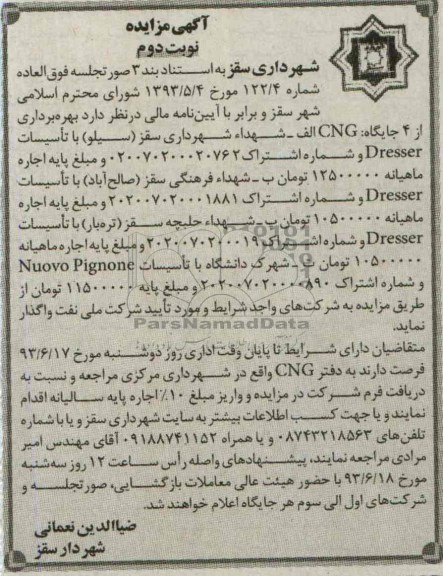 آگهی مزایده
نوبت دوم
شهرداری سقز به استناد بند ۳ صورتجلسه فوق‌العاده
شماره ۱۲۲/۴ مورخ ۱۳۹۳/۵/۴ شورای محترم اسلامی
شهر سقز و برابر با آیین‌نامه مالی درنظر دارد بهره‌برداری
از ۴ جایگاه: CNG الف ـ شهداء شهرداری سقز (سیلو) با تأسیسات
Dresser و شماره اشتراک ۰۲۰۰۷۰۲۰۰۰۲۰۷۶۲ و مبلغ پایه اجاره
ماهیانه ۱۲۵۰۰۰۰۰ تومان ب ـ شهداء فرهنگی سقز (صالح‌آباد) با تأسیسات
Dresser و شماره اشتراک ۲۰۲۰۰۷۰۲۰۰۰۱۸۸۱ و مبلغ پایه اجاره
ماهیانه ۱۰۵۰۰۰۰۰ تومان ب ـ شهداء حلبچه سقز (تره‌بار) با تأسیسات
Dresser و شماره اشتراک ۲۰۲۰۰۷۰۲۰۰۰۱۹ و مبلغ پایه اجاره ماهیانه
۱۰۵۰۰۰۰۰ تومان ج ـ شهرک دانشگاه با تأسیسات Nuovo Pignone
و شماره اشتراک ۲۰۲۰۰۷۰۲۰۰۰۰۸۹۰ و مبلغ پایه ۱۱۵۰۰۰۰۰ تومان از
طریق مزایده به شرکت‌های واجد شرایط و مورد تأیید شرکت ملی نفت واگذار
نماید.
متقاضیان دارای شرایط تا پایان وقت اداری روز دوشنبه مورخ ۹۳/۶/۱۷
فرصت دارند به دفتر CNG واقع در شهرداری مرکزی مراجعه و نسبت به
دریافت فرم شرکت در مزایده و واریز مبلغ ۱۰٪ اجاره پایه سالیانه اقدام
نمایند و یا جهت کسب اطلاعات بیشتر به سایت شهرداری سقز و یا با شماره
تلفن‌های ۰۸۷۴۳۲۱۸۵۶۳ و یا همراه ۰۹۱۸۸۷۴۱۱۵۲ آقای مهندس امیر
مرادی مراجعه نمایند، پیشنهادهای واصله رأس ساعت ۱۲ روز سه‌شنبه
مورخ ۹۳/۶/۱۸ با حضور هیئت عالی معاملات بازگشایی، صورتجلسه و
شرکت‌های اول الی سوم هر جایگاه اعلام خواهند شد.
ضیاالدین نعمانی
شهردار سقز
ParsNamadData